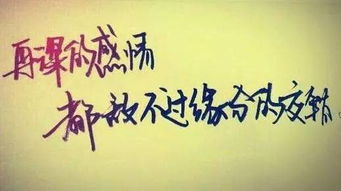 再深的感情
都敌不过缘分的疲倦。